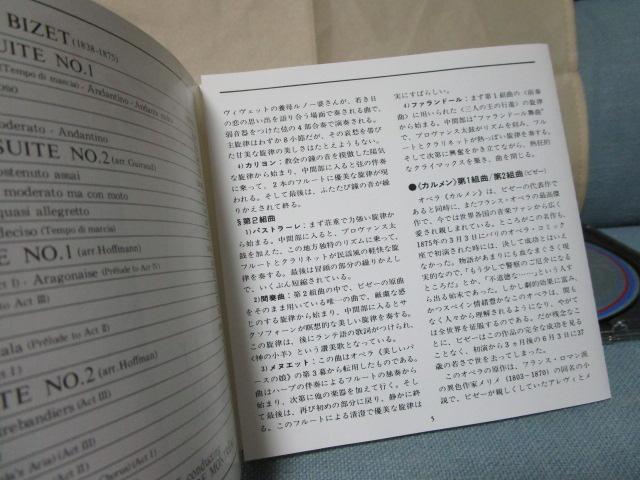 BIZET (1838-1875)
SUITE NO.1
(Tempo di marcia) - Andantino
moderato - Andantino
SUITE NO.2 (arr.Guiraud)
sostenuto assai
moderato ma con moto
quasi allegretto
deciso (Tempo di marcia)
NO.1 (arr.Hoffmann)
Aragonaise (Prélude to Act IV)
Act III)
(Prélude to Act II)
Act I)
NO.2 (arr.Hoffman)
(Act III)
Aria) (Act III)
Chorus) (Act I)
conducting
ヴィヴェットの養母ルノー婆さんが、若き日
の恋の思い出を語り合う場面で奏される曲で、
弱音器をつけた弦の4部合奏で演奏される。
主旋律はわずか8小節だが、その哀愁を帯び
た甘美な旋律の美しさはたとえようもない。
4)カリヨン:教会の鐘の音を模倣した陽気
な旋律から始まり、中間部に入ると弦の伴奏
に乗って、2本のフルートに優美な旋律が現
われる。そして最後は、ふたたび鐘の音が繰
りかえされて終る。
§第2組曲
1)パストラーレ:まず荘重で力強い旋律か
ら始まる。中間部に入ると、プロヴァンス太
鼓を加えた、この地方独特のリズムに乗って、
フルートとクラリネットが民謡風の軽快な旋
律を奏する。最後は冒頭の部分の繰りかえし
で、いくぶん短縮されている。
2)間奏曲:第2組曲の中で、ビゼーの原曲
をそのまま用いている唯一の曲で、厳粛な感
じのする旋律から始まり、中間部に入るとサ
クソフォーンが瞑想的な美しい旋律を奏する。
この旋律は、後にラテン語の歌詞がつけられ、
《神の小羊》という讃美歌となっている。
3)メヌエット:この曲はオペラ《美しいパ
ースの娘》の第3幕から転用したものである。
曲はハープの伴奏によるフルートの独奏から
始まり、次第に他の楽器を加えて行く。そし
て最後は、再び初めの部分に戻り、静かに終
る。このフルートによる清澄で優美な旋律は
実にすばらしい。
4)ファランドール:まず第1組曲の《前奏
曲》に用いられた《三人の王の行進》の旋律
から始まる。中間部は“ファランドール舞曲”
で、プロヴァンス太鼓がリズムを刻み、フル
ートとクラリネットが熱っぽい旋律を奏する。
そして次第に興奮をかき立てながら、熱狂的
なクライマックスを築き、曲を閉じる。
●《カルメン》第1組曲/第2組曲(ビゼー)
オペラ《カルメン》は、ビゼーの代表作で
あると同時に、またフランス・オペラの最高傑
作で、今では世界各国の音楽ファンから広く
愛され親しまれている。ところがこの名作も、
1875年の3月3日にパリのオペラ・コミック
座で初演された時には、決して成功とはいえ
なかった。物語があまりにも血なまぐさく現
実的なので、「もう少しで警察のご厄介になる
ところだ」とか、「不道徳な……」という人す
ら出る始末であった。しかし劇的効果に富み、
かつスペイン情緒豊かなこのオペラは、間も
なく人々から理解されるようになり、やがて
は全世界を征服するのである。だが残念なこ
とに、ビゼーはこの作品の完全な成功を見る
ことなく、初演から3ヵ月後の6月3日に37
歳の若さで世を去ってしまった。
このオペラの原作は、フランス・ロマン派
の異色作家メリメ(1803〜1870)の同名の小
説で、ビゼーが親しくしていたアレヴィとメ
5